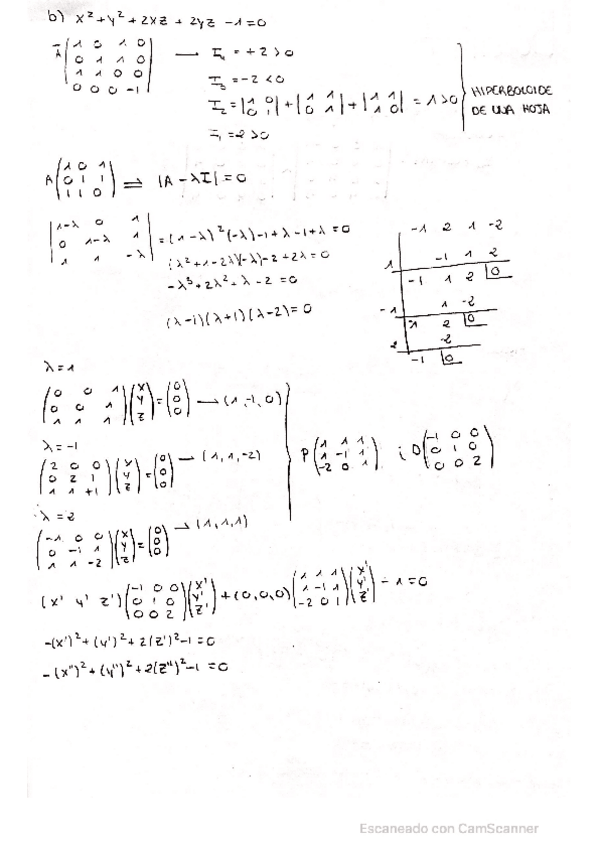 b) x² + y² + 2xz + 2yz - 1 = 0
Ā |1 0 1 0| → I₄ = +2 > 0
|0 1 1 0| I₃ = -2 < 0
|1 1 0 0| I₂ = |1 0; 0 1| + |1 1; 0 1| + |1 1; 1 0| = 1 > 0
|0 0 0 -1| I₁ = 2 > 0
HIPERBOLOIDE
DE UNA HOJA
A (1 0 1; 0 1 1; 1 1 0) ⇒ |A - λI| = 0
|1-λ 0 1| = (1-λ)²(-λ) - 1 + λ - 1 + λ = 0
|0 1-λ 1| (λ² + 1 - 2λ)(-λ) - 2 + 2λ = 0
|1 1 -λ| -λ³ + 2λ² + λ - 2 = 0
(λ-1)(λ+1)(λ-2) = 0
-1 2 1 -2
1 -1 1 2
-1 1 2 0
-1 1 -2
1 2 0
2 -2
-1 0
λ = 1
(0 0 1; 0 0 1; 1 1 1)(x; y; z) = (0; 0; 0) → (1, -1, 0)
λ = -1
(2 0 0; 0 2 1; 1 1 +1)(x; y; z) = (0; 0; 0) → (1, 1, -2)
P (1 1 1; 1 -1 1; -2 0 1) i D (-1 0 0; 0 1 0; 0 0 2)
λ = 2
(-1 0 0; 0 -1 1; 1 1 -2)(x; y; z) = (0; 0; 0) → (1, 1, 1)
(x' y' z')(-1 0 0; 0 1 0; 0 0 2)(x'; y'; z') + (0, 0, 0)(1 1 1; 1 -1 1; -2 0 1)(x'; y'; z') - 1 = 0
-(x')² + (y')² + 2(z')² - 1 = 0
-(x'')² + (y'')² + 2(z'')² - 1 = 0
Escaneado con CamScanner